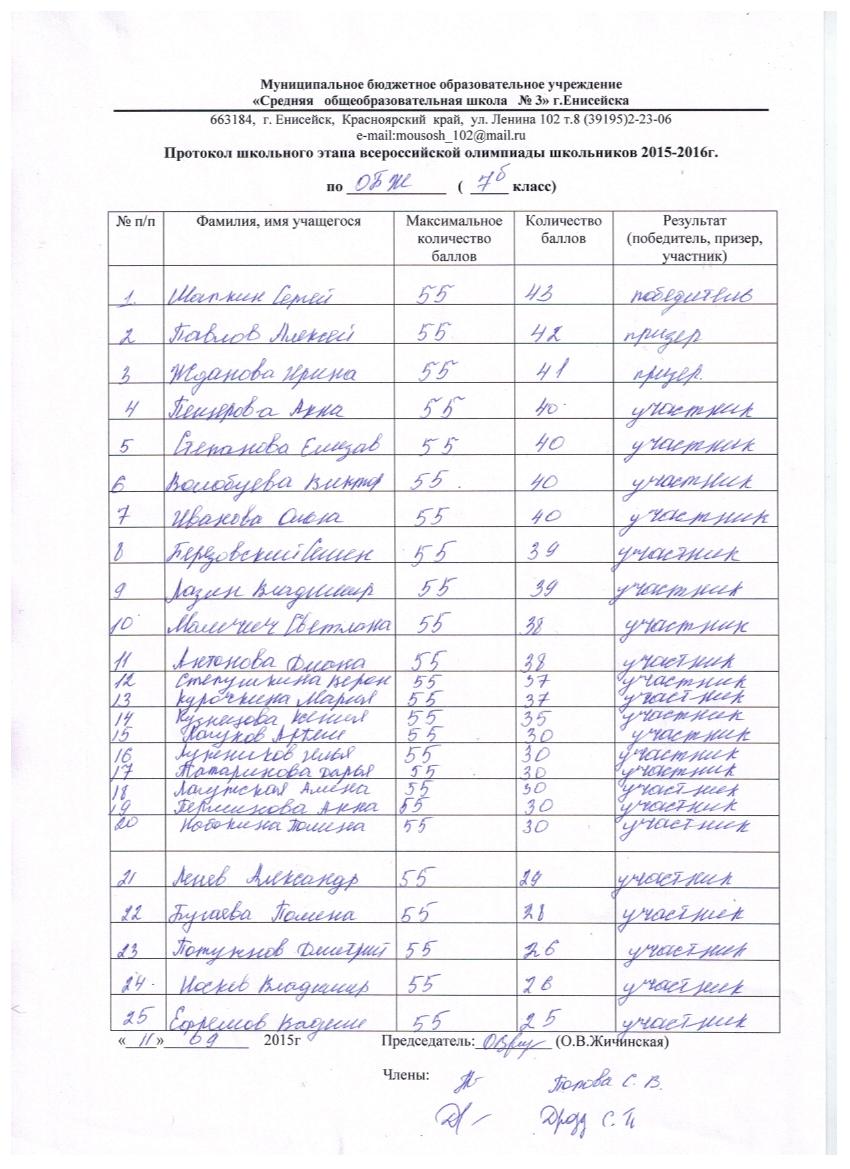 Муниципальное бюджетное образовательное учреждение
«Средняя общеобразовательная школа № 3» г.Енисейска
663184, г. Енисейск, Красноярский край, ул. Ленина 102 т.8 (39195)2-23-06
e-mail:mousosh_102@mail.ru
Протокол школьного этапа всероссийской олимпиады школьников 2015-2016г.
по ОБЖ ( 7б класс)
№ п/п Фамилия, имя учащегося Максимальное количество баллов Количество баллов Результат (победитель, призер, участник)
1. Шапкин Сергей 55 43 победитель
2 Павлов Алексей 55 42 призер
3 Жданова Ирина 55 41 призер.
4 Анна 55 40 участник
5 Степанова Елизав 55 40 участник
6 Волобуева Виктор 55 40 участник
7 Иванова Ольга 55 40 участник
8 Березовский Семен 55 39 участник
9 Лазин Владимир 55 39 участник
10 Светлана 55 38 участник
11 Антонова Диана 55 38 участник
12 Степушкина Верон 55 37 участник
13 Курочкина Мария 55 37 участник
14 Кузнецова Ксения 55 35 участник
15 Артем 55 30 участник
16 Илья 55 30 участник
17 Татаринова Дарья 55 30 участник
18 Алена 55 30 участник
19 Анна 55 30 участник
20 Полина 55 30 участник
21 Александр 55 29 участник
22 Бугаева Полина 55 28 участник
23 Дмитрий 55 26 участник
24. Владимир 55 26 участник
25 Ефремов Вадим 55 25 участник
« 11 » 09 2015г Председатель: (О.В.Жичинская)
Члены:
Попова С. В.
Дрозд С. П